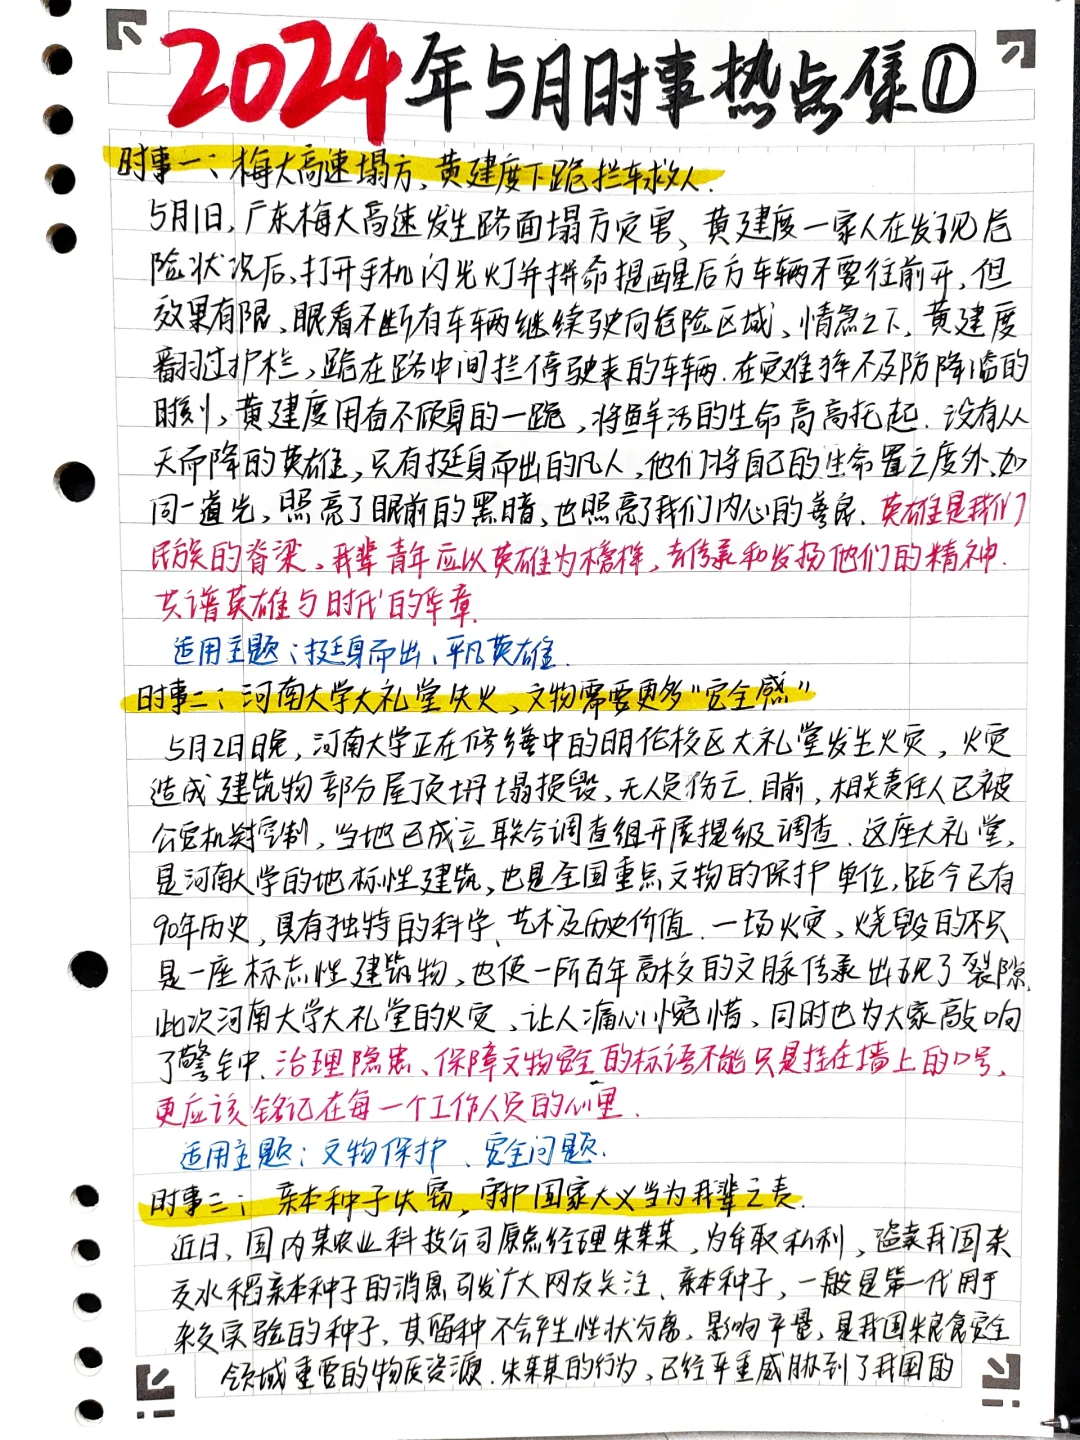 2024年5月时事热点集①
时事一：梅大高速塌方，黄建度下跪拦车救人.
5月1日，广东梅大高速发生路面塌方灾害、黄建度一家人在发现危
险状况后，打开手机闪光灯并拼命提醒后方车辆不要往前开，但
效果有限、眼看不断有车辆继续驶向危险区域，情急之下，黄建度
翻过护栏，跪在路中间拦停驶来的车辆.在灾难猝不及防降临的
时刻，黄建度用奋不顾身的一跪，将鲜活的生命高高托起.没有从
天而降的英雄，只有挺身而出的凡人，他们将自己的生命置之度外、如
同一道光，照亮了眼前的黑暗，也照亮了我们内心的善良.英雄是我们
民族的脊梁，我辈青年应以英雄为榜样，去传承和发扬他们的精神.
共谱英雄与时代的华章.
适用主题：挺身而出、平凡英雄.
时事二：河南大学大礼堂失火，文物需要更多“安全感”
5月2日晚，河南大学正在修缮中的明伦校区大礼堂发生火灾，火灾
造成建筑物部分屋顶坍塌损毁，无人员伤亡.目前，相关责任人已被
公安机关控制，当地已成立联合调查组开展提级调查.这座大礼堂，
是河南大学的地标性建筑，也是全国重点文物的保护单位，距今已有
90年历史，具有独特的科学、艺术及历史价值.一场火灾，烧毁的不只
是一座标志性建筑物，也使一所百年高校的文脉传承出现了裂隙.
此次河南大学大礼堂的火灾，让人痛心惋惜，同时也为大家敲响
了警钟.治理隐患、保障文物安全的标语不能只是挂在墙上的口号，
更应该铭记在每一个工作人员的心里.
适用主题：文物保护、安全问题.
时事三：亲本种子失窃，守护国家大义当为我辈之责.
近日，国内某农业科技公司原总经理朱某某，为牟取私利，盗卖我国杂
交水稻亲本种子的消息引发广大网友关注.亲本种子，一般是第一代用于
杂交实验的种子，其留种不会产生性状分离，影响产量，是我国粮食安全
领域重要的物质资源.朱某某的行为，已经严重威胁到了我国的